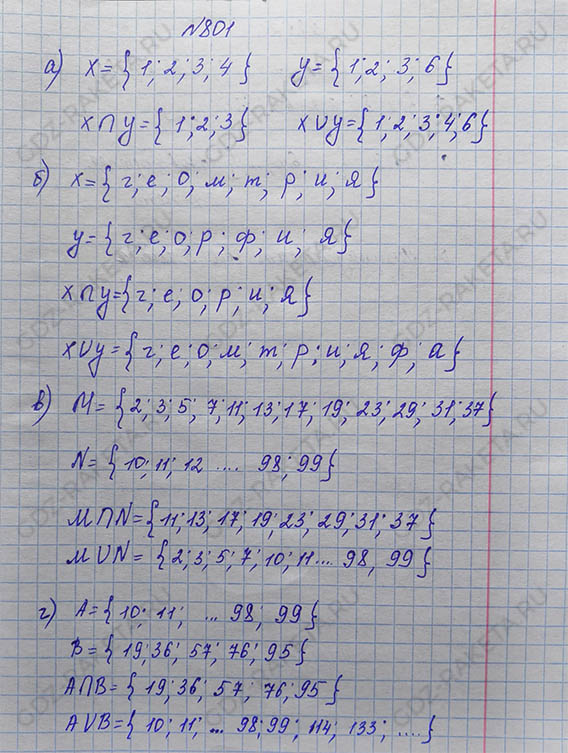 №801
а) X={1; 2; 3; 4} y={1; 2; 3; 6}
X∩y={1; 2; 3} X∪y={1; 2; 3; 4; 6}
б) X={г; е; о; м; т; р; и; я}
y={г; е; о; р; ф; и; я}
X∩y={г; е; о; р; и; я}
X∪y={г; е; о; м; т; р; и; я; ф; а}
в) M={2; 3; 5; 7; 11; 13; 17; 19; 23; 29; 31; 37}
N={10; 11; 12 .... 98; 99}
M∩N={11; 13; 17; 19; 23; 29; 31; 37}
M∪N={2; 3; 5; 7; 10; 11... 98, 99}
г) A={10; 11; ... 98; 99}
B={19; 36; 57; 76; 95}
A∩B={19; 36; 57; 76; 95}
A∪B={10; 11; ... 98; 99; 114; 133; ....}
GDZ-RAKETA.RU